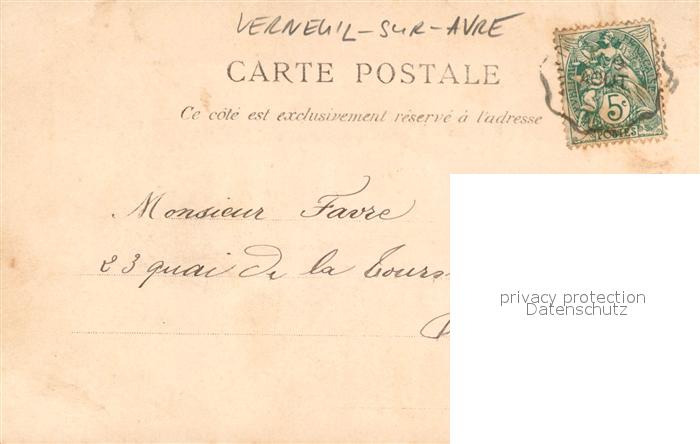 VERNEUIL-SUR-AVRE
CARTE POSTALE
Ce côté est exclusivement réservé à l'adresse
AOUT
5c
POSTES
Monsieur Favre
23 quai de la Tour
privacy protection
Datenschutz